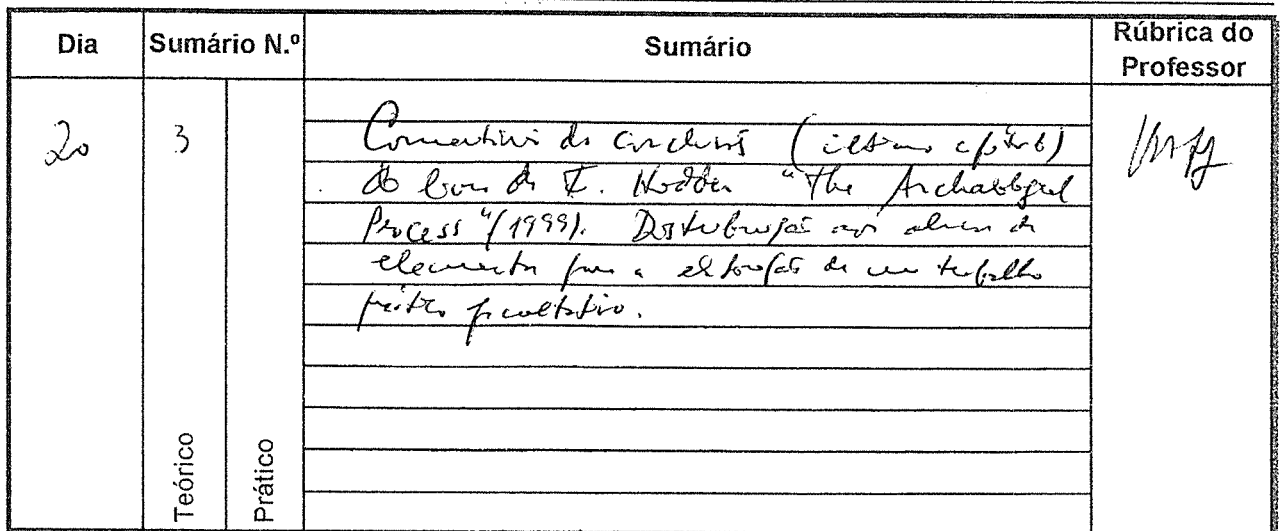 Dia Sumário N.º Sumário Rúbrica do Professor
20 3
Comentário da conclusão (último capítulo)
do livro de I. Hodder "The Archaeological
Process" (1999). Distribuição aos alunos de
elementos para a elaboração de um trabalho
prático facultativo.
Teórico Prático